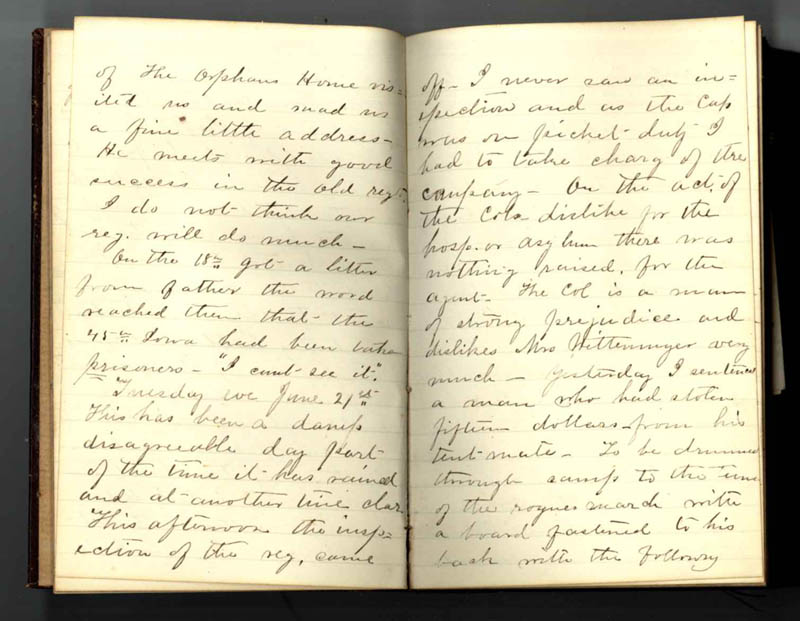 of The Orphans Home vis=
ited us and read us
a fine little address—
He meets with good
success in the old reg.
I do not think our
reg. will do much—
On the 18th got a litter
from father the word
reached them that the
45th Iowa had been taken
prisoners— "I cant see it".
Tuesday eve June 21st
This has been a damp
disagreeable day part
of the time it has rained
and at another time clar
This afternoon the insp=
ection of the reg, came
off— I never saw an in=
spection and as the Cap
was on picket duty I
had to take charg of the
company— On the act. of
the Cols dislike for the
hosp. or asylum there was
nothing raised, for the
agent— The Col is a man
of strong prejudice and
dislikes Mrs Wittenmyer very
much— Yesterday I sentenced
a man who had stolen
fifteen dollars from his
tent mate— To be drummed
through camp to the tune
of the rogues march with
a board fastened to his
back with the following